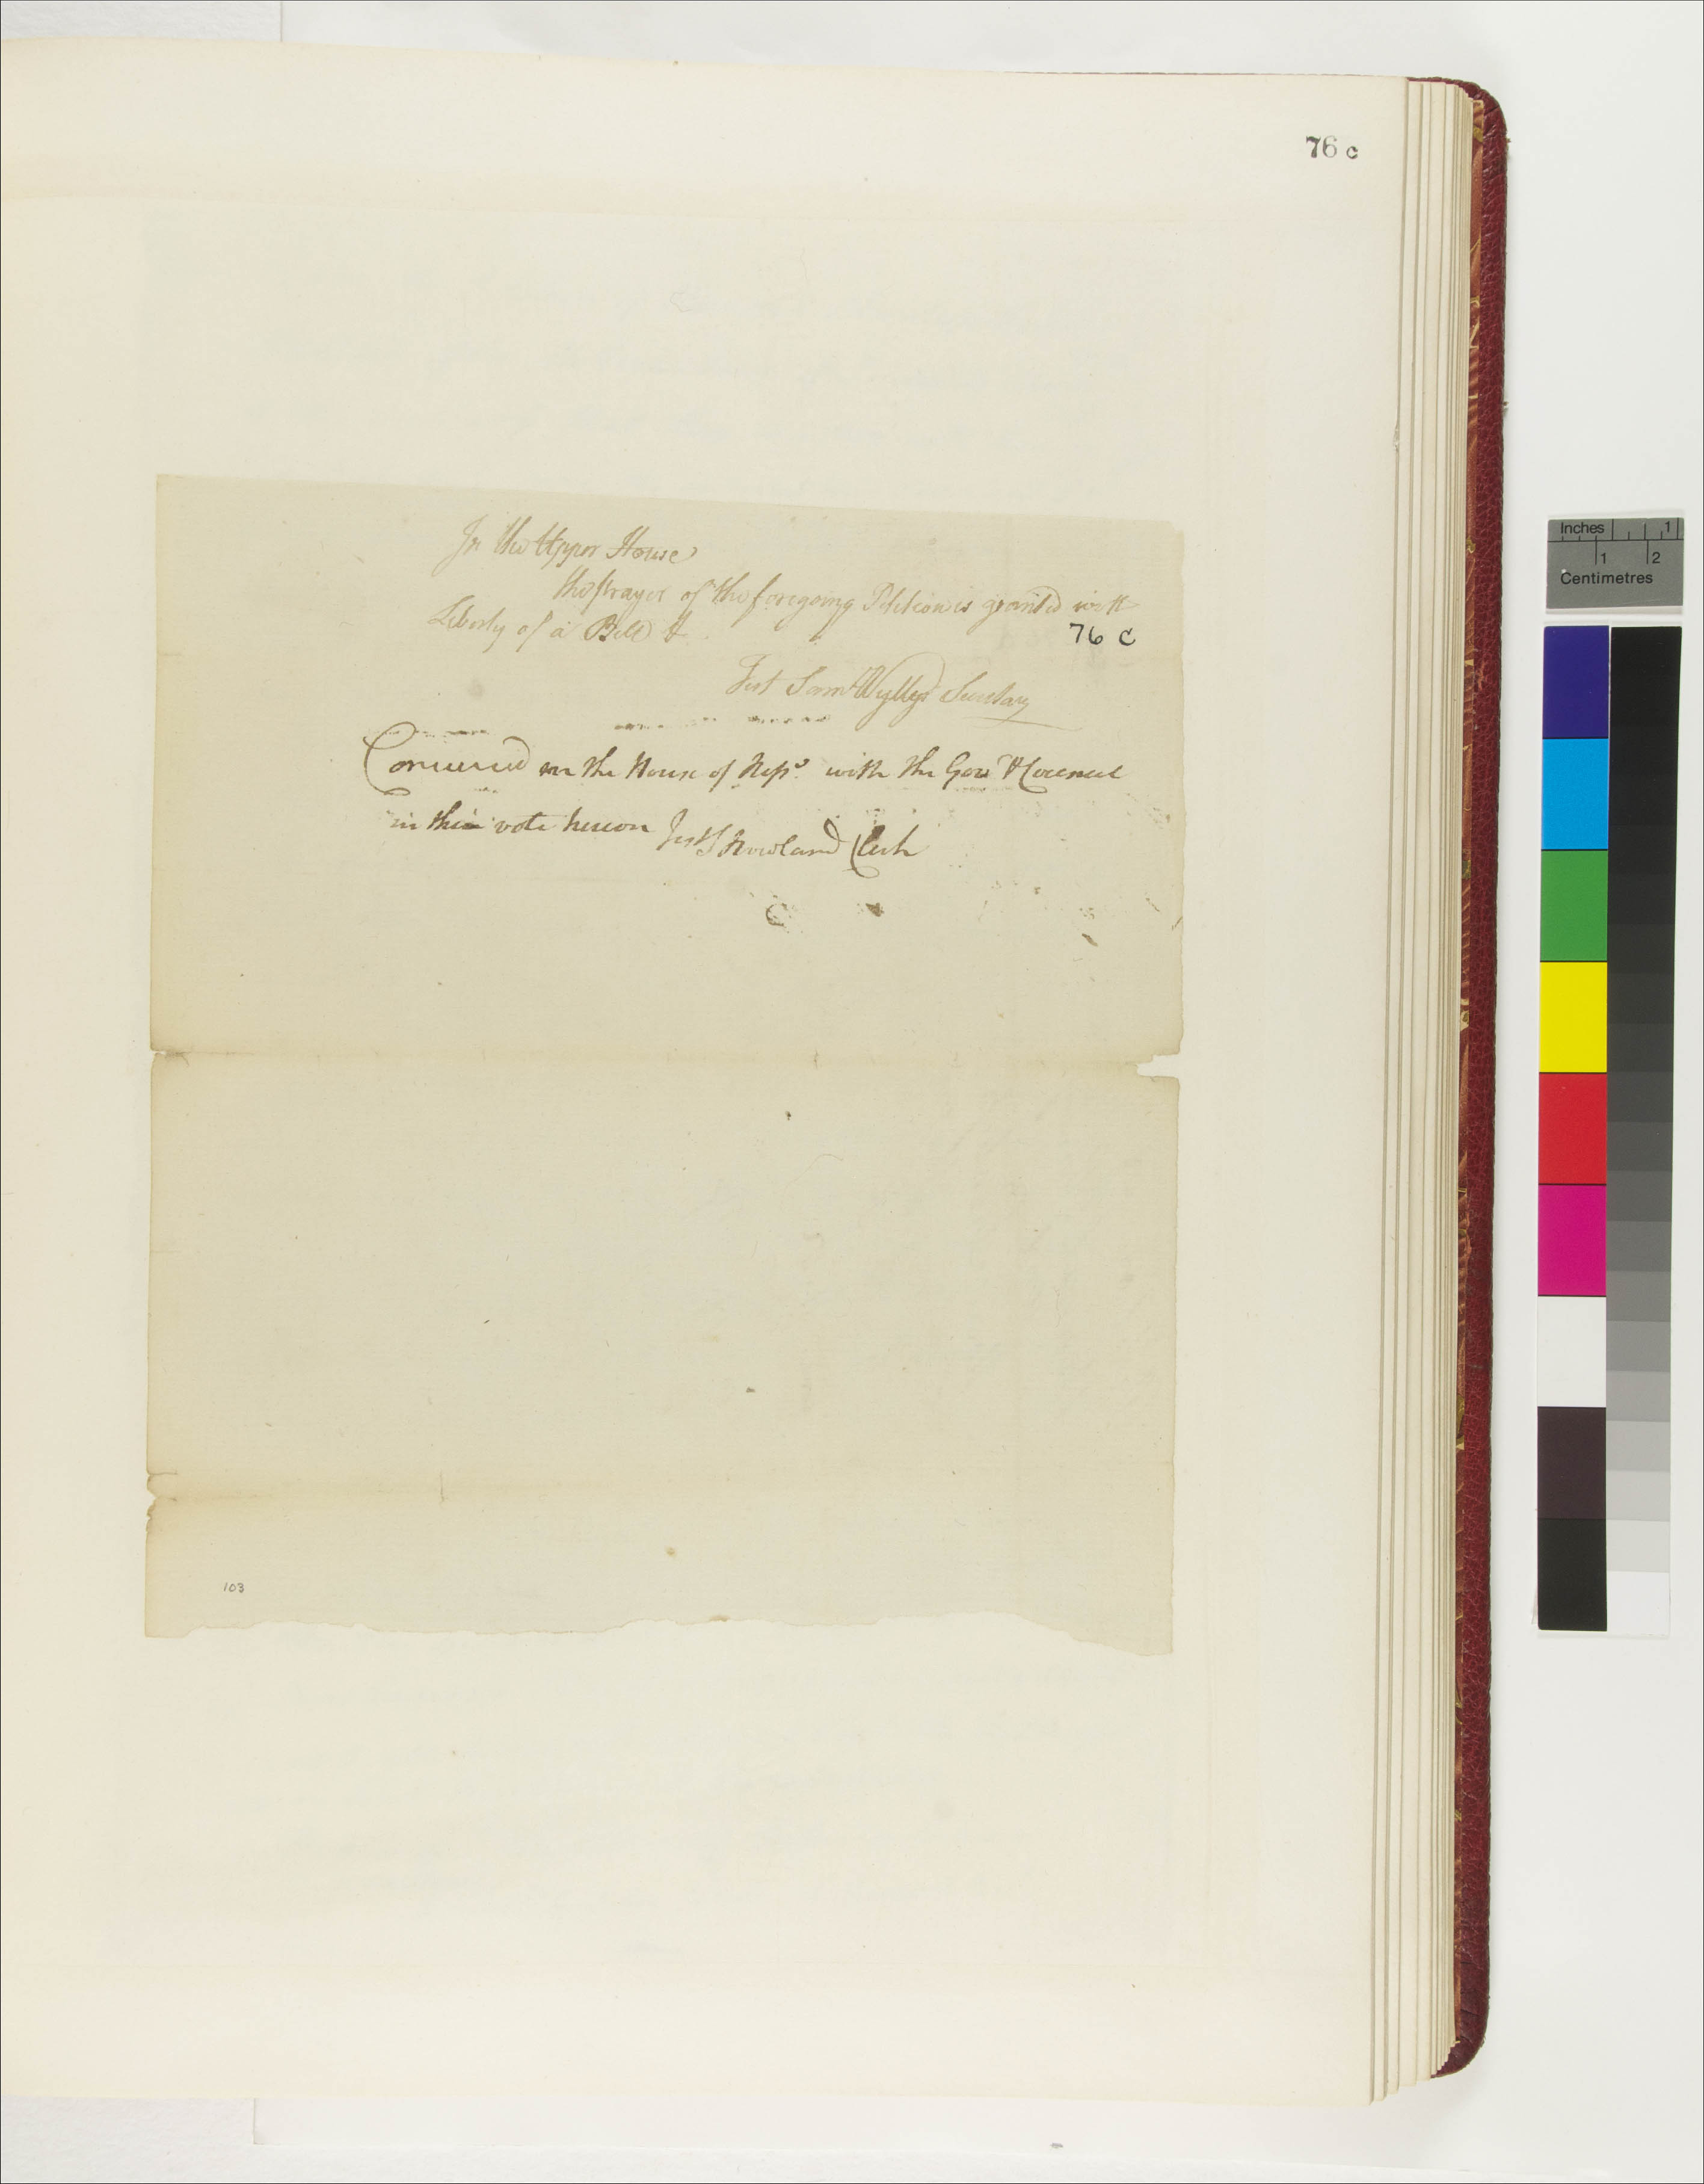 76 c
In the Upper House
the prayer of the foregoing Petition is granted with
Liberty of a Bill &
76 C
Test Saml Wyllys Secretary
Concurred in the House of Reps. with the Gov & Council
in their vote hereon Test J Howland Clerk
103
Inches 1
1 2
Centimetres